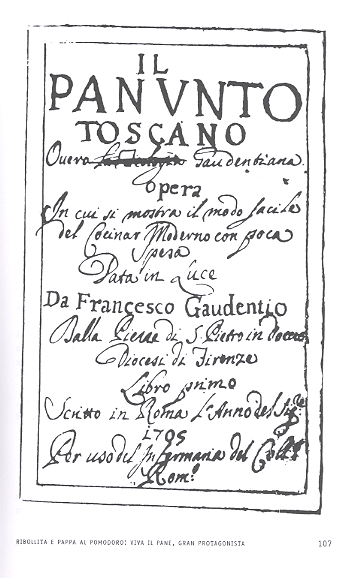 IL
PANVNTO
TOSCANO
Overo Gaudentiana
Opera
In cui si mostra il modo facile
del Cocinar Moderno con poca
spesa
Data in Luce
Da Francesco Gaudentio
Dalla Pieue di S. Pietro in
Diocesi di Firenze
Libro primo
Scritto in Roma L'Anno del Sig.re
1705
Per uso del Infermaria del Coll.o
Rom.o
RIBOLLITA E PAPPA AL POMODORO: VIVA IL PANE, GRAN PROTAGONISTA
107